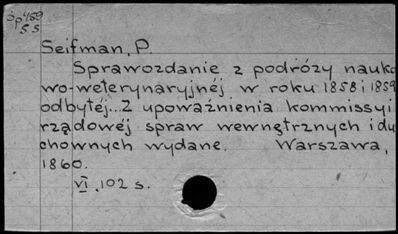 Sp459
SS
Seifman, P.
Sprawozdanie z podróży nauko
wo-weterynaryjnéj w roku 1858 i 1859
odbytéj... Z upoważnienia kommissyi
rządowéj spraw wewnętrznych i du
chownych wydane. Warszawa,
1860.
VI, 102 s.